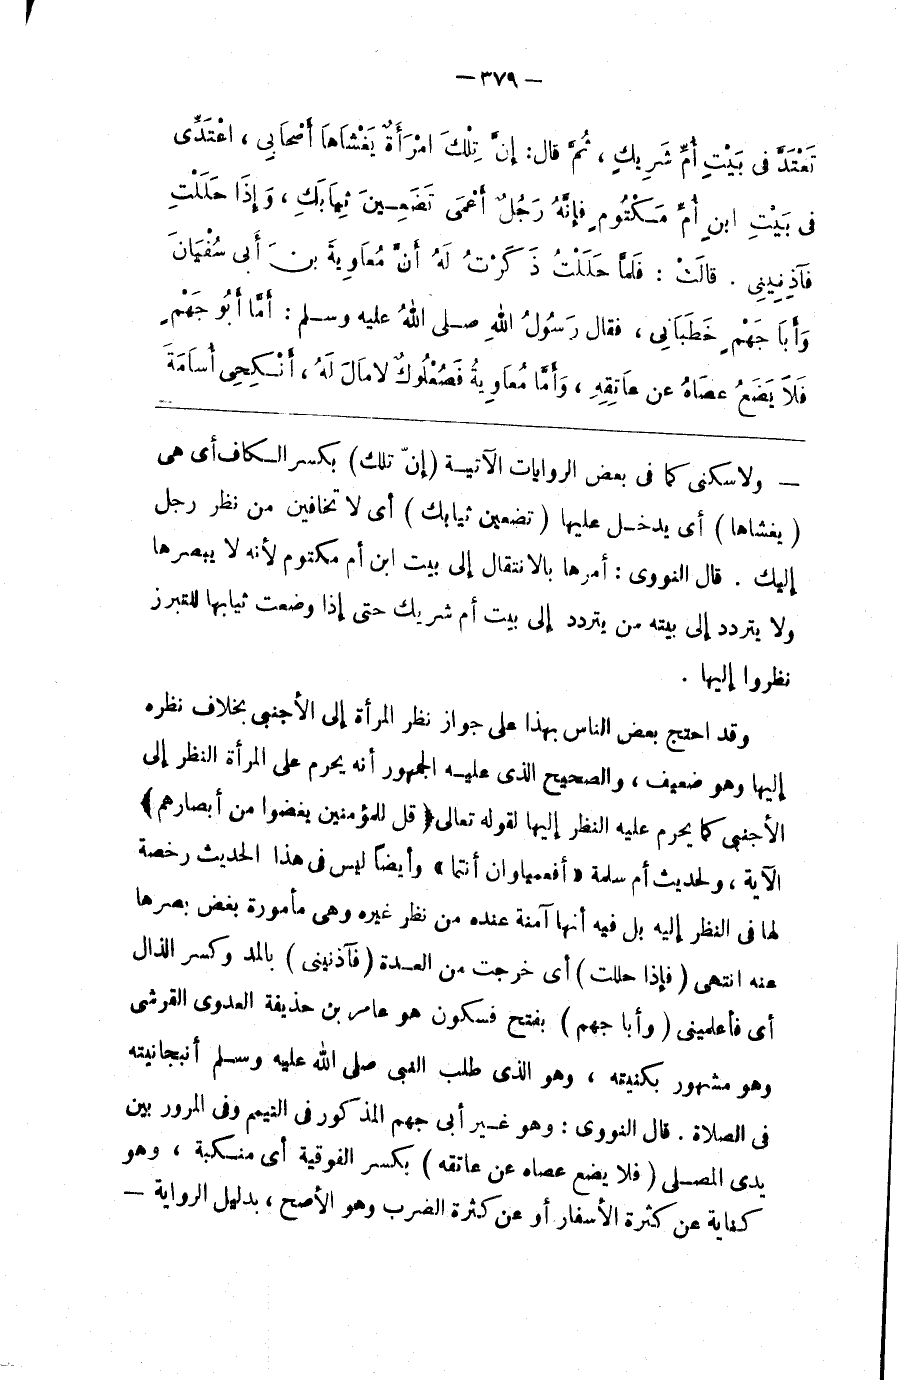 — ٣٧٩ —
تَعْتَدَّ فى بَيْتِ أُمِّ شَرِيكٍ ، ثُمَّ قال: إِنَّ تِلْكَ امْرَأَةٌ يَغْشَاهَا أَصْحَابِي ، اعْتَدِّى
فى بَيْتِ ابنِ أُمِّ مَكْتُومٍ فإِنَّهُ رَجُلٌ أَعْمَى تَضَعِينَ ثِيَابَكِ ، وَإِذَا حَلَلْتِ
فَآذِنِينِي . قالَتْ : فَلَمَّا حَلَلْتُ ذَكَرْتُ لَهُ أَنَّ مُعَاوِيَةَ بنَ أَبى سُفْيَانَ
وَأَبَا جَهْمٍ خَطَبَانِي ، فقال رَسُولُ اللهِ صلى اللهُ عليه وسلم : أَمَّا أَبُو جَهْمٍ
فَلَا يَضَعُ عصَاهُ عن عَاتِقِهِ ، وَأَمَّا مُعَاوِيةُ فَصُعْلُوكٌ لامالَ لَهُ ، أَنْكِحِى أُسَامَةَ
— ولاسكنى كما فى بعض الروايات الآتية (إنّ تلك) بكسر الكاف أى هى
( يغشاها ) أى يدخل عليها ( تضعين ثيابك ) أى لا تخافين من نظر رجل
إليك . قال النووى : أمرها بالانتقال إلى بيت ابن أم مكتوم لأنه لا يبصرها
ولا يتردد إلى بيته من يتردد إلى بيت أم شريك حتى إذا وضعت ثيابها للتبرز
نظروا إليها .
وقد احتج بعض الناس بهذا على جواز نظر المرأة إلى الأجنبى بخلاف نظره
إليها وهو ضعيف ، والصحيح الذى عليه الجمهور أنه يحرم على المرأة النظر إلى
الأجنبى كما يحرم عليه النظر إليها لقوله تعالى ﴿ قل للمؤمنين يغضوا من أبصارهم ﴾
الآية ، ولحديث أم سلمة « أفعمياوان أنتما » وأيضاً ليس فى هذا الحديث رخصة
لها فى النظر إليه بل فيه أنها آمنة عنده من نظر غيره وهى مأمورة بغض بصرها
عنه انتهى ( فإذا حللت ) أى خرجت من العدة ( فآذنينى ) بالمد وكسر الذال
أى فأعلمينى ( وأبا جهم ) بفتح فسكون هو عامر بن حذيفة العدوى القرشى
وهو مشهور بكنيته ، وهو الذى طلب النبى صلى الله عليه وسلم أنبجانيته
فى الصلاة . قال النووى : وهو غير أبى جهم المذكور فى التيمم وفى المرور بين
يدى المصلى ( فلا يضع عصاه عن عاتقه ) بكسر الفوقية أى منكبة ، وهو
كناية عن كثرة الأسفار أو عن كثرة الضرب وهو الأصح ، بدليل الرواية —